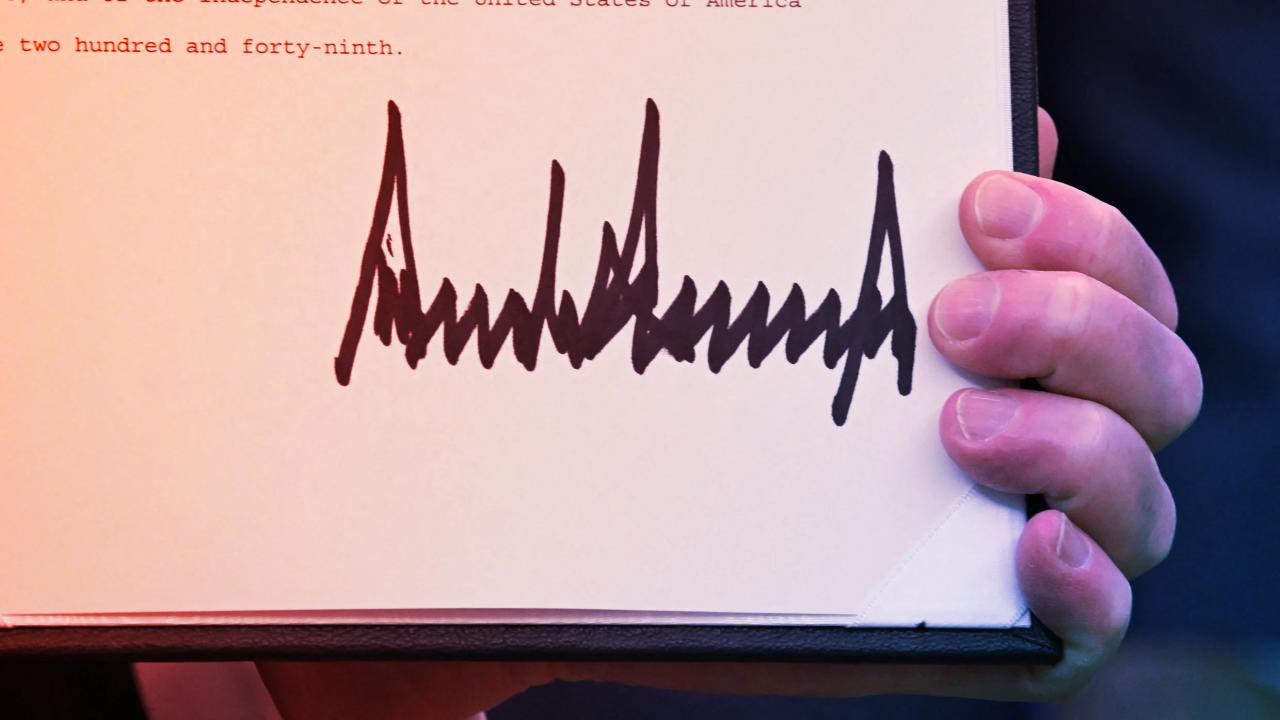 and of the Independence of the United States of America
two hundred and forty-ninth.